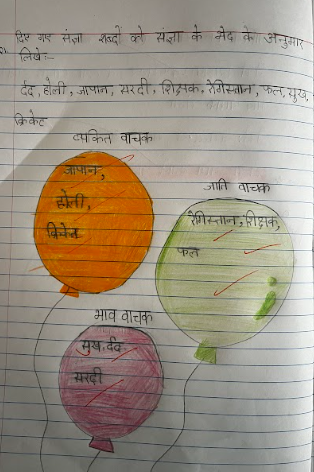 दिए गए संज्ञा शब्दों को संज्ञा के भेद के अनुसार
लिखे:-
दर्द, होली, जापान, सरदी, शिक्षक, रेगिस्तान, फल, सुख,
क्रिकेट
व्यक्ति वाचक
जापान,
होली,
क्रिकेट
जाति वाचक
रेगिस्तान, शिक्षक,
फल
भाव वाचक
सुख, दर्द
सरदी